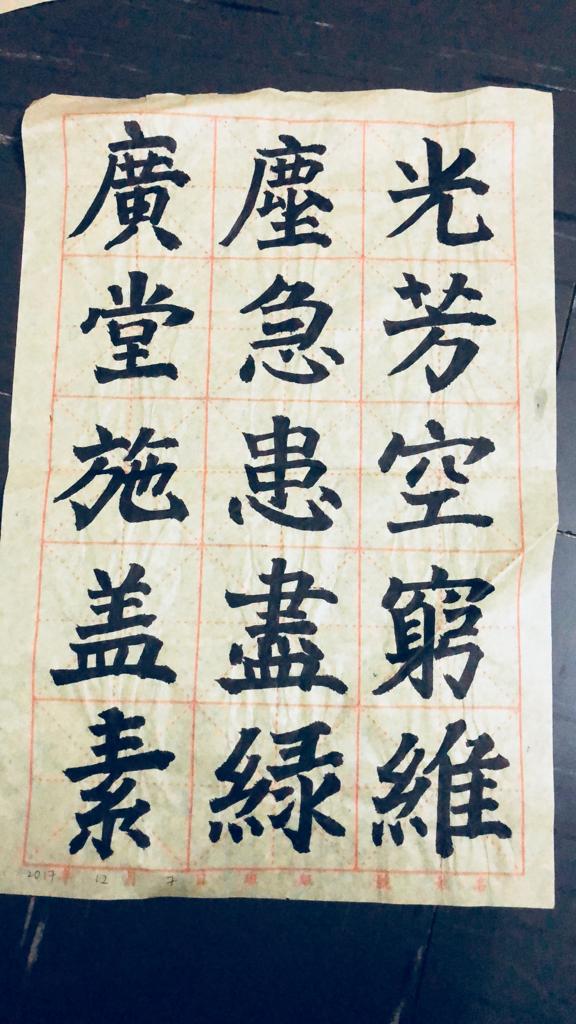 光芳空窮維
塵急患盡緑
廣堂施盖素
2017年 12月 7日